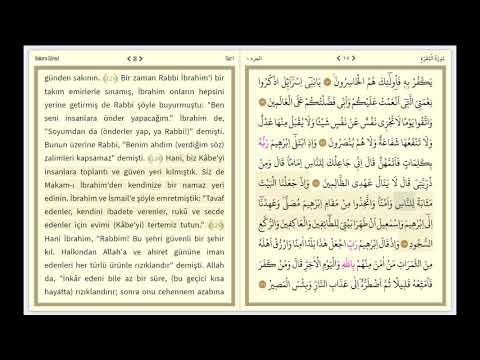 Bakara Sûresi
Cüz 1
günden sakının. Bir zaman Rabbi İbrahim'i bir
takım emirlerle sınamış, İbrahim onların hepsini
yerine getirmiş de Rabbi şöyle buyurmuştu: "Ben
seni insanlara önder yapacağım." İbrahim de,
"Soyumdan da (önderler yap, ya Rabbi!)" demişti.
Bunun üzerine Rabbi, "Benim ahdim (verdiğim söz)
zalimleri kapsamaz" demişti. Hani, biz Kâbe'yi
insanlara toplantı ve güven yeri kılmıştık. Siz de
Makam-ı İbrahim'den kendinize bir namaz yeri
edinin. İbrahim ve İsmail'e şöyle emretmiştik: "Tavaf
edenler, kendini ibadete verenler, rukû ve secde
edenler için evimi (Kâbe'yi) tertemiz tutun."
Hani İbrahim, "Rabbim! Bu şehri güvenli bir şehir
kıl. Halkından Allah'a ve ahiret gününe iman
edenleri her türlü ürünle rızıklandır" demişti. Allah
da, "İnkâr edeni bile az bir süre, (bu geçici kısa
hayatta) rızıklandırır; sonra onu cehennem azabına
الجزء ١
١٨
سُورَةُ الْبَقَرَةِ
يَكْفُرْ بِهِ فَاُولٰٓئِكَ هُمُ الْخَاسِرُونَ يَابَنِٓي اِسْرَٓائِلَ اذْكُرُوا
نِعْمَتِيَ الَّتِٓي اَنْعَمْتُ عَلَيْكُمْ وَاَنِّي فَضَّلْتُكُمْ عَلَى الْعَالَمِينَ
وَاتَّقُوا يَوْمًا لَا تَجْزِي نَفْسٌ عَنْ نَفْسٍ شَيْئًا وَلَا يُقْبَلُ مِنْهَا عَدْلٌ
وَلَا تَنْفَعُهَا شَفَاعَةٌ وَلَا هُمْ يُنْصَرُونَ وَاِذِ ابْتَلٰٓى اِبْرٰهِيمَ رَبُّهُ
بِكَلِمَاتٍ فَاَتَمَّهُنَّ قَالَ اِنِّي جَاعِلُكَ لِلنَّاسِ اِمَامًا قَالَ وَمِنْ
ذُرِّيَّتِي قَالَ لَا يَنَالُ عَهْدِي الظَّالِمِينَ وَاِذْ جَعَلْنَا الْبَيْتَ
مَثَابَةً لِلنَّاسِ وَاَمْنًا وَاتَّخِذُوا مِنْ مَقَامِ اِبْرٰهِيمَ مُصَلًّى وَعَهِدْنَٓا
اِلٰٓى اِبْرٰهِيمَ وَاِسْمٰعِيلَ اَنْ طَهِّرَا بَيْتِيَ لِلطَّٓائِفِينَ وَالْعَاكِفِينَ وَالرُّكَّعِ
السُّجُودِ وَاِذْ قَالَ اِبْرٰهِيمُ رَبِّ اجْعَلْ هٰذَا بَلَدًا اٰمِنًا وَارْزُقْ اَهْلَهُ
مِنَ الثَّمَرَاتِ مَنْ اٰمَنَ مِنْهُمْ بِاللّٰهِ وَالْيَوْمِ الْاٰخِرِ قَالَ وَمَنْ كَفَرَ
فَاُمَتِّعُهُ قَلِيلًا ثُمَّ اَضْطَرُّهُٓ اِلٰى عَذَابِ النَّارِ وَبِئْسَ الْمَصِيرُ